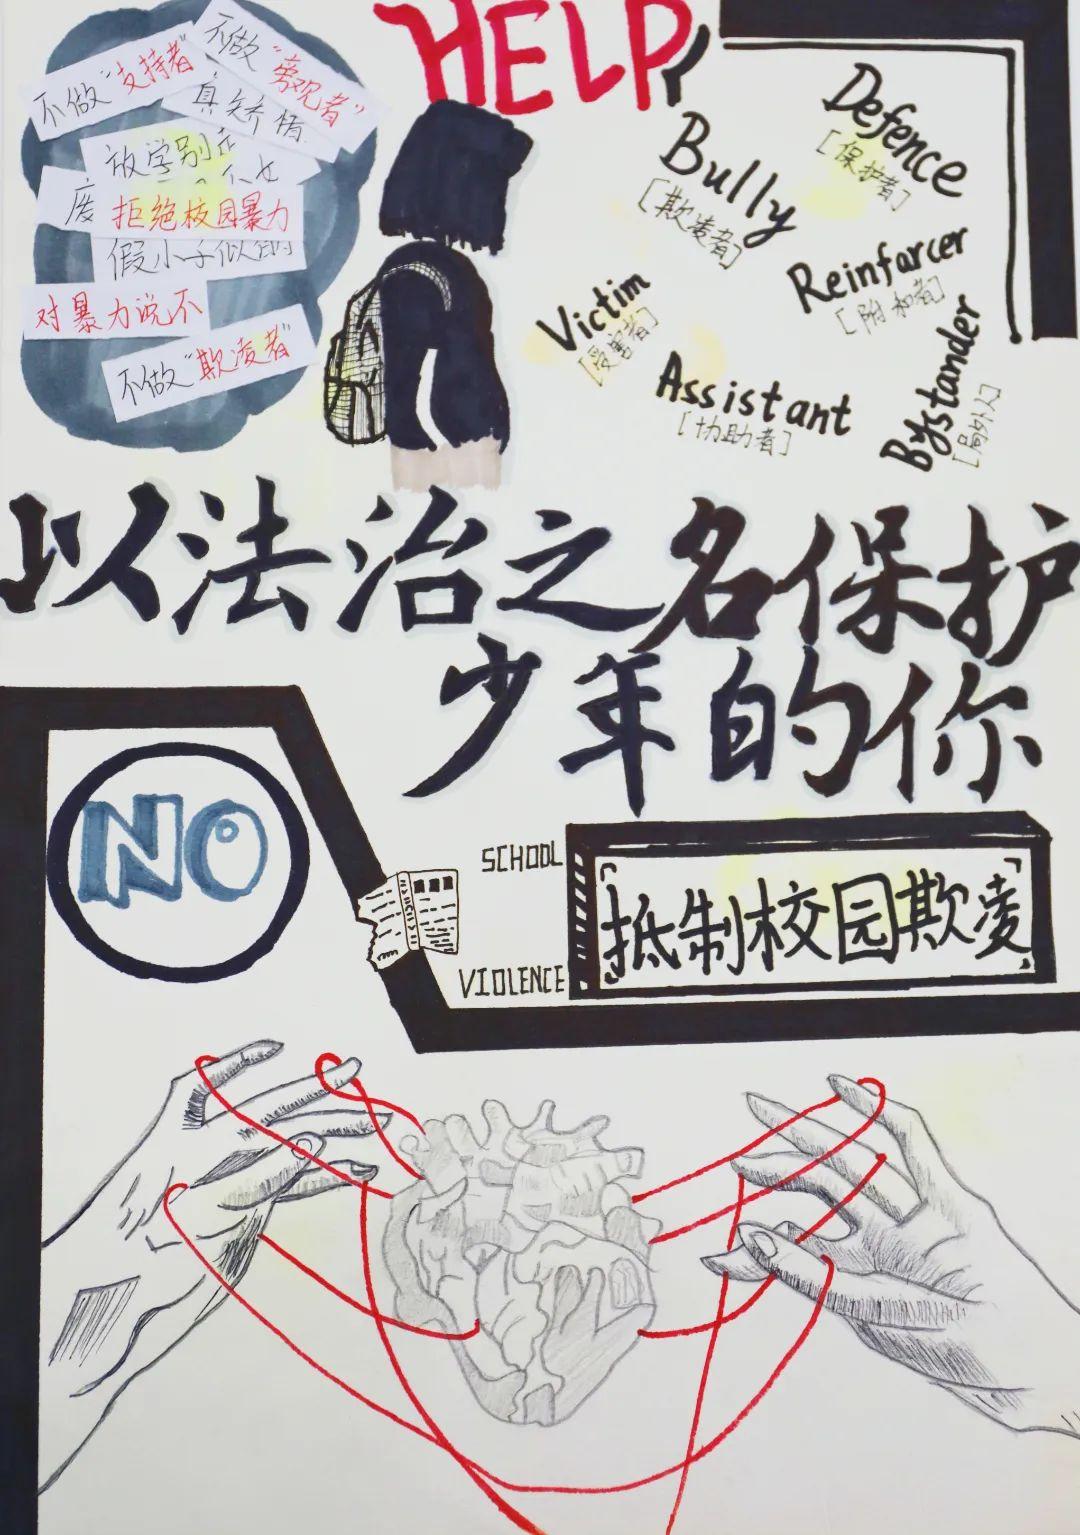 HELP
不做“支持者”
不做“旁观者”
真矫情
放学别走
拒绝校园暴力
假小子似的
对暴力说不
不做“欺凌者”
Defence
[保护者]
Bully
[欺凌者]
Reinforcer
[附和者]
Victim
[受害者]
Assistant
[协助者]
Bystander
[局外人]
以法治之名保护
少年的你
NO
SCHOOL
VIOLENCE
「抵制校园欺凌」